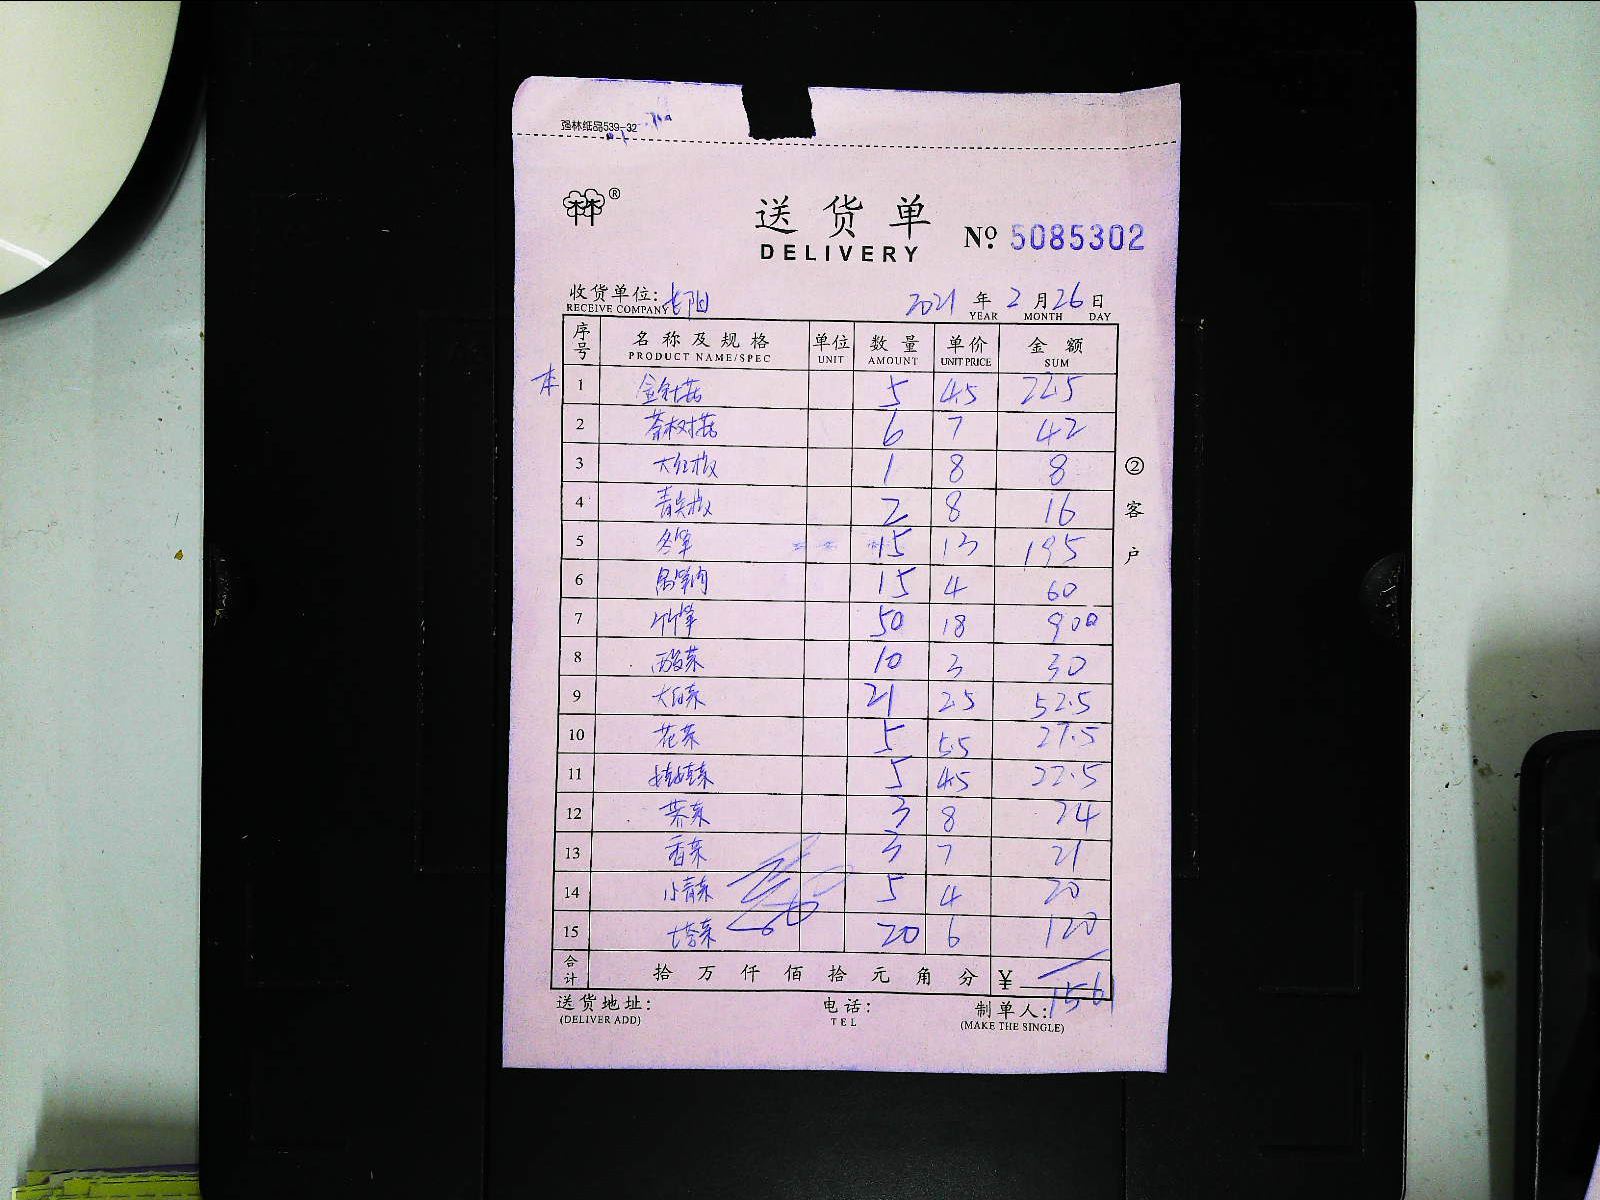 强林纸品539-32
®
送货单
DELIVERY
№ 5085302
收货单位: 长阳 2021 年 2 月 26 日
RECEIVE COMPANY YEAR MONTH DAY
序号 名称及规格 单位 数量 单价 金额
PRODUCT NAME/SPEC UNIT AMOUNT UNIT PRICE SUM
本 1 金针菇 5 4.5 22.5
2 茶树菇 6 7 42
3 大红椒 1 8 8
4 青尖椒 2 8 16
5 冬笋 15 13 195
6 15 4 60
7 竹笋 50 18 900
8 酸菜 10 3 30
9 大白菜 21 2.5 52.5
10 花菜 5 5.5 27.5
11 5 4.5 22.5
12 荠菜 3 8 24
13 香菜 3 7 21
14 小青菜 5 4 20
15 20 6 120
合计 拾 万 仟 佰 拾 元 角 分 ¥ 1561
②客户
送货地址: 电话: 制单人:
(DELIVER ADD) TEL (MAKE THE SINGLE)